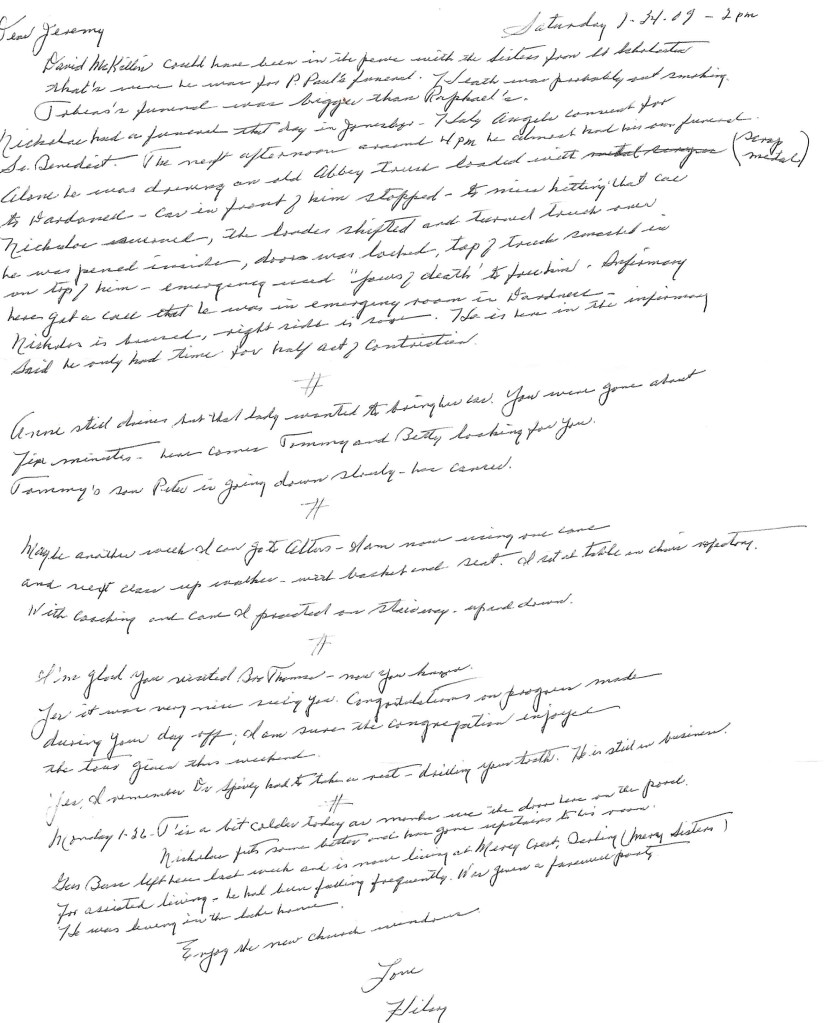 Saturday 1-24-09 - 2 pm
Dear Jeremy
David McKillin could have been in the pews with the sisters from St Scholastica
that's were he was for P. Paul's funeral. Death was probably not smoking.
Tobias's funeral was bigger than Raphael's.
Nicholas had a funeral that day in Jonesboro - Holy Angels convent for
Sr. Benedict. The next afternoon around 4 pm he almost had his own funeral.
Alone he was driving an old Abbey truck loaded with (scrap metal)
to Dardanelle - car in front of him stopped - to miss hitting that car
Nicholas swerved, the load shifted and turned truck over
he was pened inside, doors was locked, top of truck smashed in
on top of him - emergency used "jaws of death" to free him. Infirmary
here got a call that he was in emergency room in Dardanelle -
Nicholas is bruised, right side is sore. He is here in the infirmary
Said he only had time for half act of Contrition.
#
Anne still drives but that lady wanted to bring her car. You were gone about
five minutes - here comes Tommy and Betty looking for you.
Tommy's son Peter is going down slowly - has cancer.
#
Maybe another week I can go to - I am now using one cane
and next close up walker - with basket and seat. I sat at table in choir refectory.
With coaching and cane I practiced on stairway - up and down.
#
I'm glad you visited Bro Thomas - now you know.
Yes it was very nice seeing you. Congratulations on progress made
during your day off; I am sure the congregation enjoyed
the tour given this weekend.
Yes, I remember Dr Spivey had to take a rest - drilling your tooth. He is still in business.
#
Monday 1-26 - T is a bit colder today as monks use the door here on the pond.
Nicholas felt some better and has gone upstairs to his room.
Gus left here last week and is now living at Mercy Crest, Barling (Mercy Sisters)
for assisted living - he had been falling frequently. Was given a farewell party
He was living in the lake house.
Enjoy the new church windows.
Love
Hilary